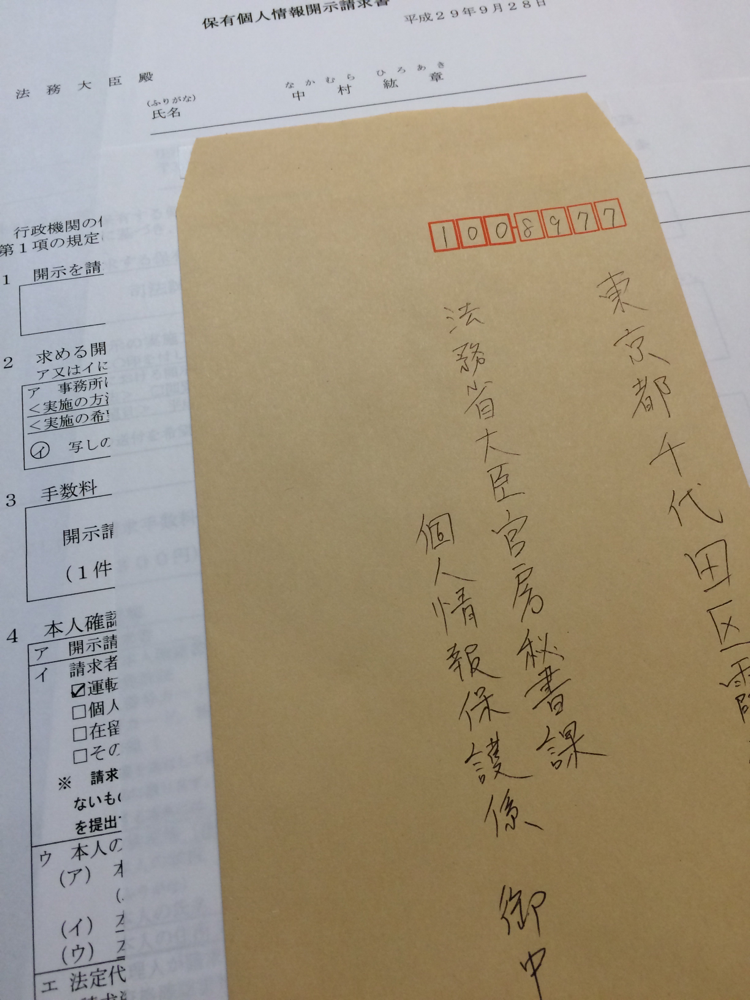 保有個人情報開示請求書
平成２９年９月２８日
法務大臣殿
なかむら ひろあき
(ふりがな)
氏名 中村 紘章
行政機関の
第１項の規定
1 開示を請
2 求める開
ア又はイに
ア 事務所
＜実施の方
＜実施の希
㋑ 写しの
3 手数料
開示請
（１件
4 本人確認
ア 開示請
イ 請求者
☑運転
□個人
□在留
□その
※ 請求
ないもの
を提出
ウ 本人の
（ア） 本
（イ）
（ウ）
エ 法定代
1008977
東京都千代田区霞
法務省大臣官房秘書課
個人情報保護係 御中